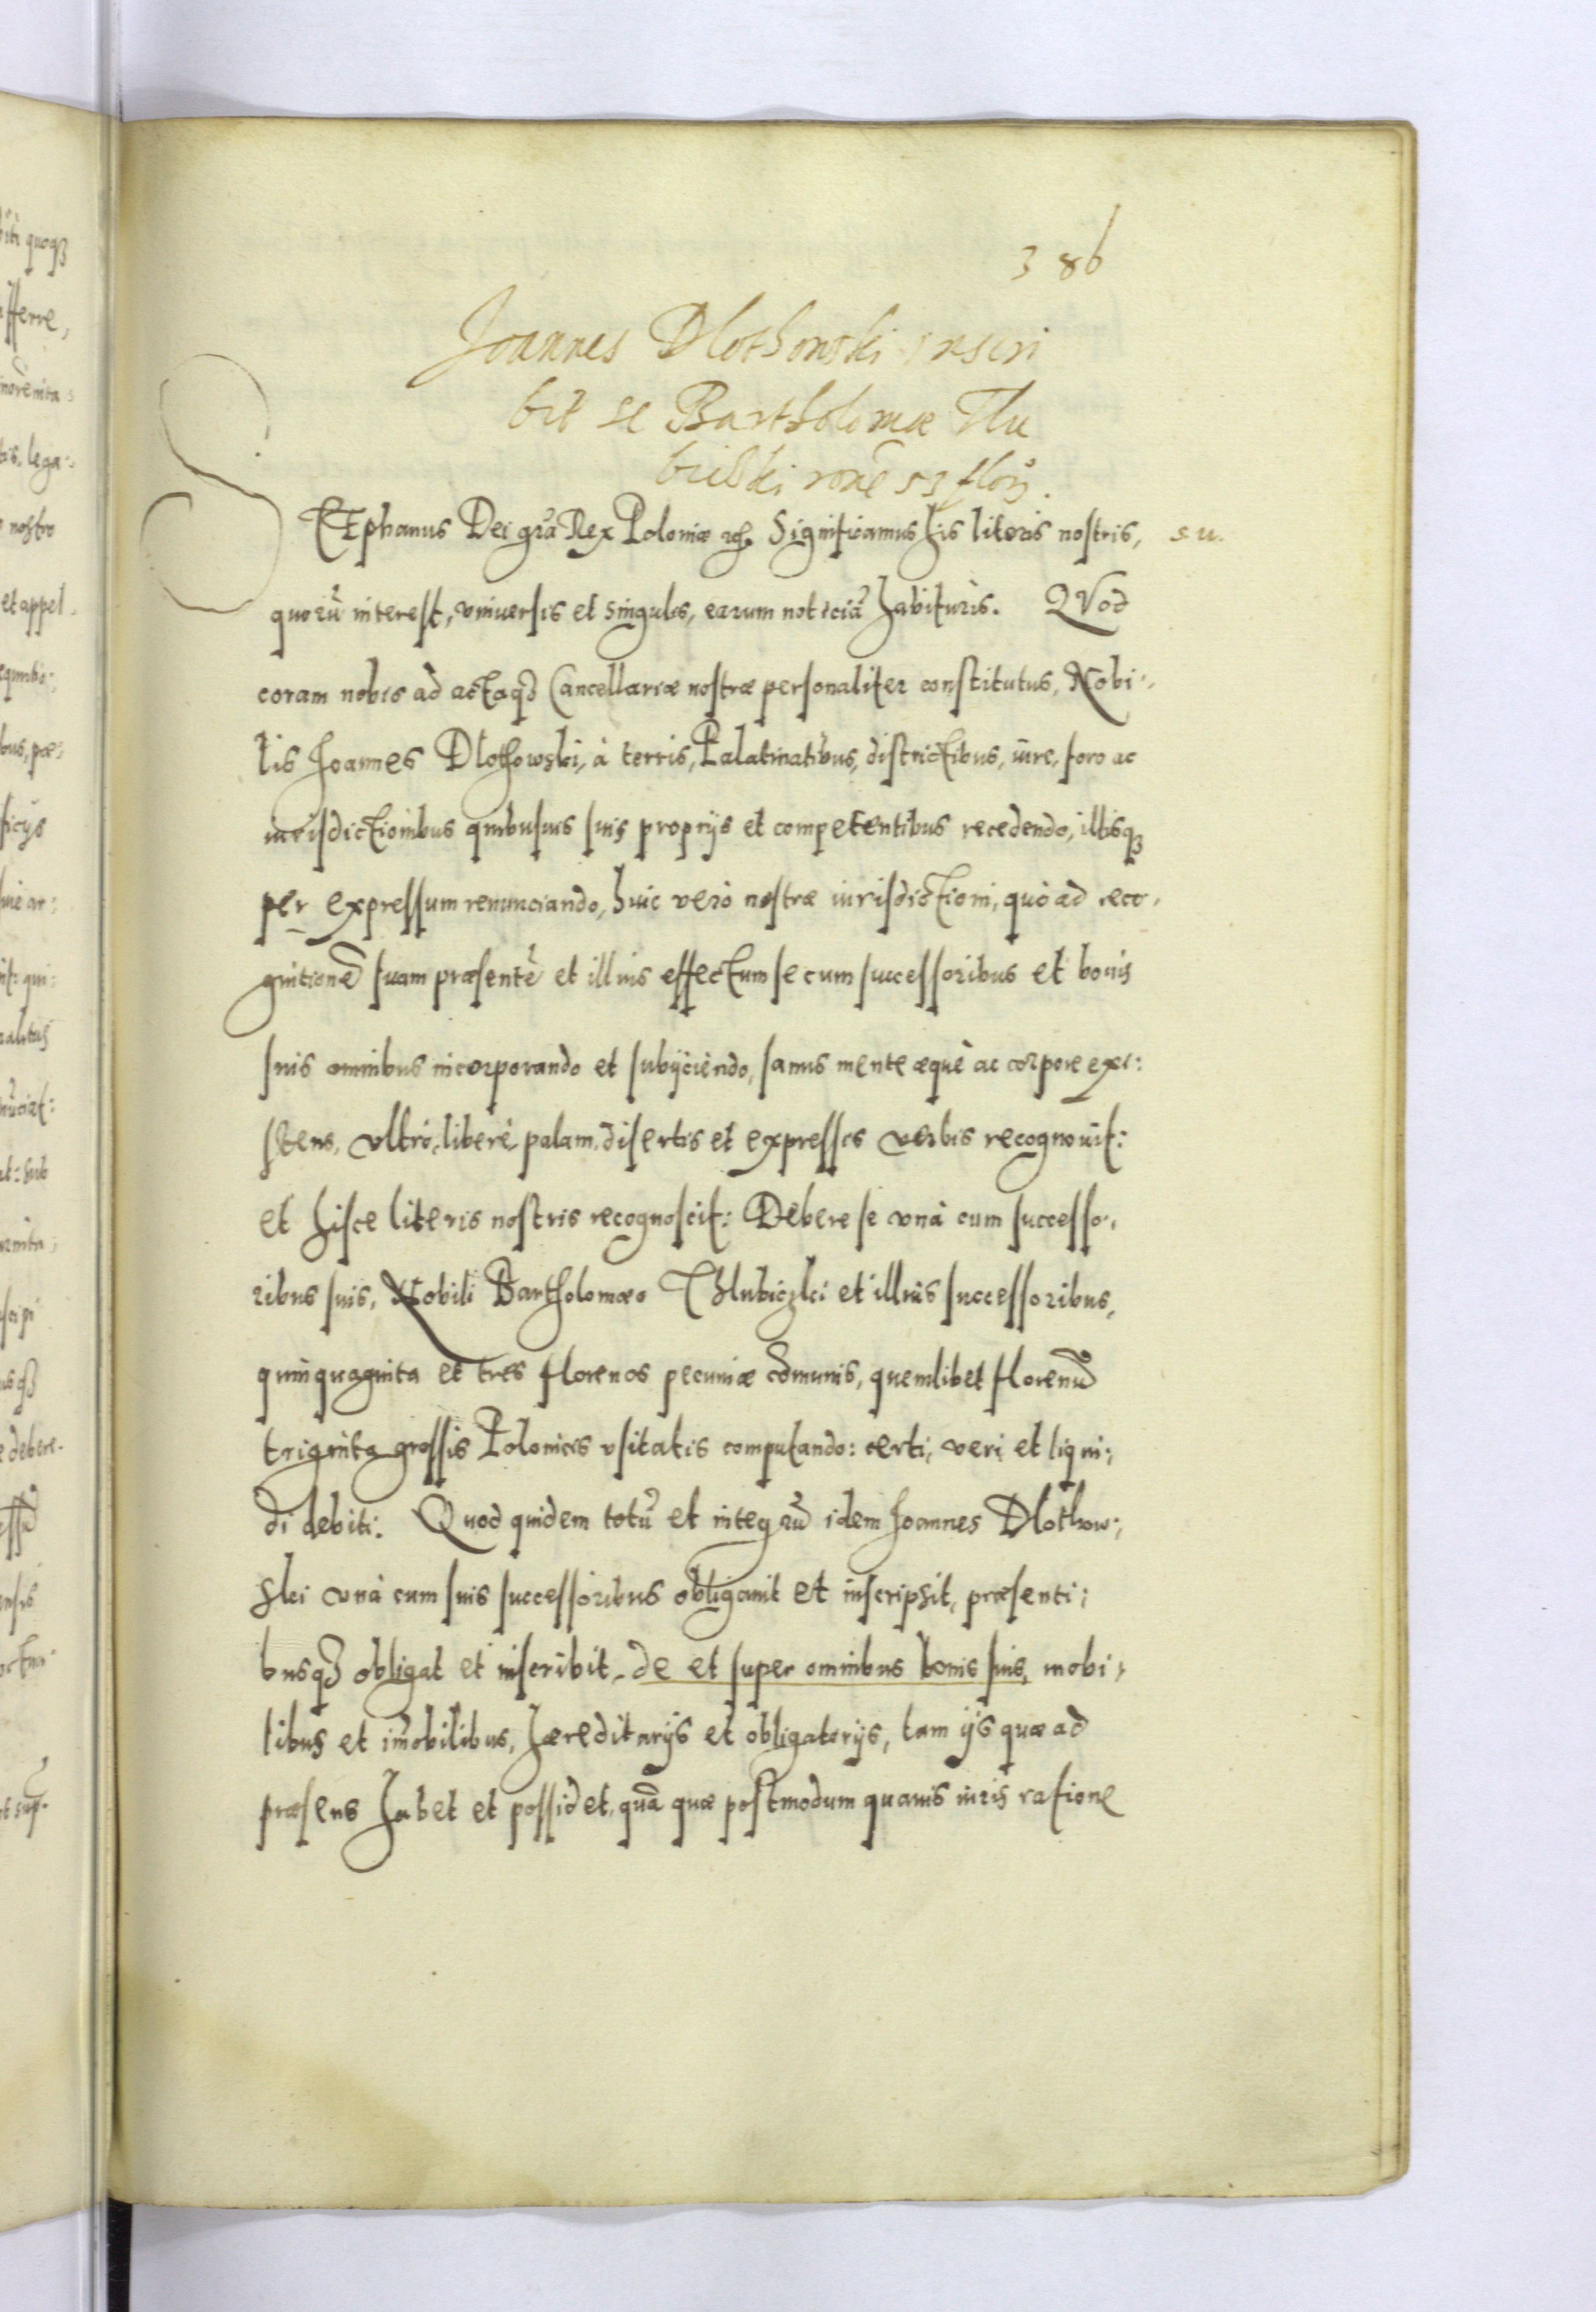 386
Joannes Dlothowski inscri
bit se Bartholomæ Tlu
bicski rōne 53 flor.
STEphanus Dei gr̃a Rex Poloniæ etc. Significamus his literis nostris, s u.
quorũ interest, vniuersis et singulis, earum noticiã habituris. QVod
coram nobis ad actaq3 Cancellariæ nostræ personaliter constitutus, Nobi:
lis Joannes Dlothowski, à terris, Palatinatibus, districtibus, iure, foro ac
iurisdictionibus quibusuis suis proprijs et competentibus recedendo, illisq3
per expressum renunciando, huic verò nostræ iurisdictioni, quò ad reco:
gnitionẽ suam præsentẽ et illius effectum se cum successoribus et bonis
suis omnibus incorporando et subijciendo, sanus mente æquè ac corpore exi:
stens, vltrò, liberè, palam, disertis et expressis verbis recognouit:
et hisce literis nostris recognoscit: Debere se vnà cum successo:
ribus suis, Nobili Bartholomæo Thlubiczki et illius successoribus,
quinquaginta et tres florenos pecuniæ cõmunis, quemlibet florenũ
triginta grossis Polonicis vsitatis computando: certi, veri et liqui:
di debiti: Quod quidem totũ et integrũ idem Joannes Dlothow:
ski vnà cum suis successoribus obligauit et inscripsit, præsenti:
busq3 obligat et inscribit, de et super omnibus bonis suis, mobi:
libus et im̃obilibus, hæreditarijs et obligatorijs, tam ijs quæ ad
præsens habet et possidet, quã quæ postmodum quauis iuris ratione